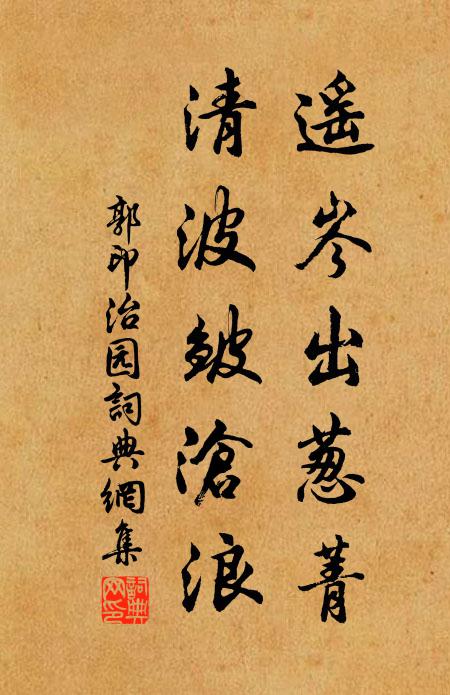 遥岑出葱菁
清波皱滄浪
郭印治园詞典網集
詞典网印